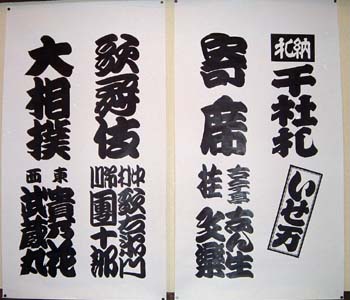 納札
千社札
いせ万
寄席
古今亭志ん生
桂文楽
歌舞伎
中村歌右衛門
市川團十郎
大相撲
東 貴乃花
西 武蔵丸